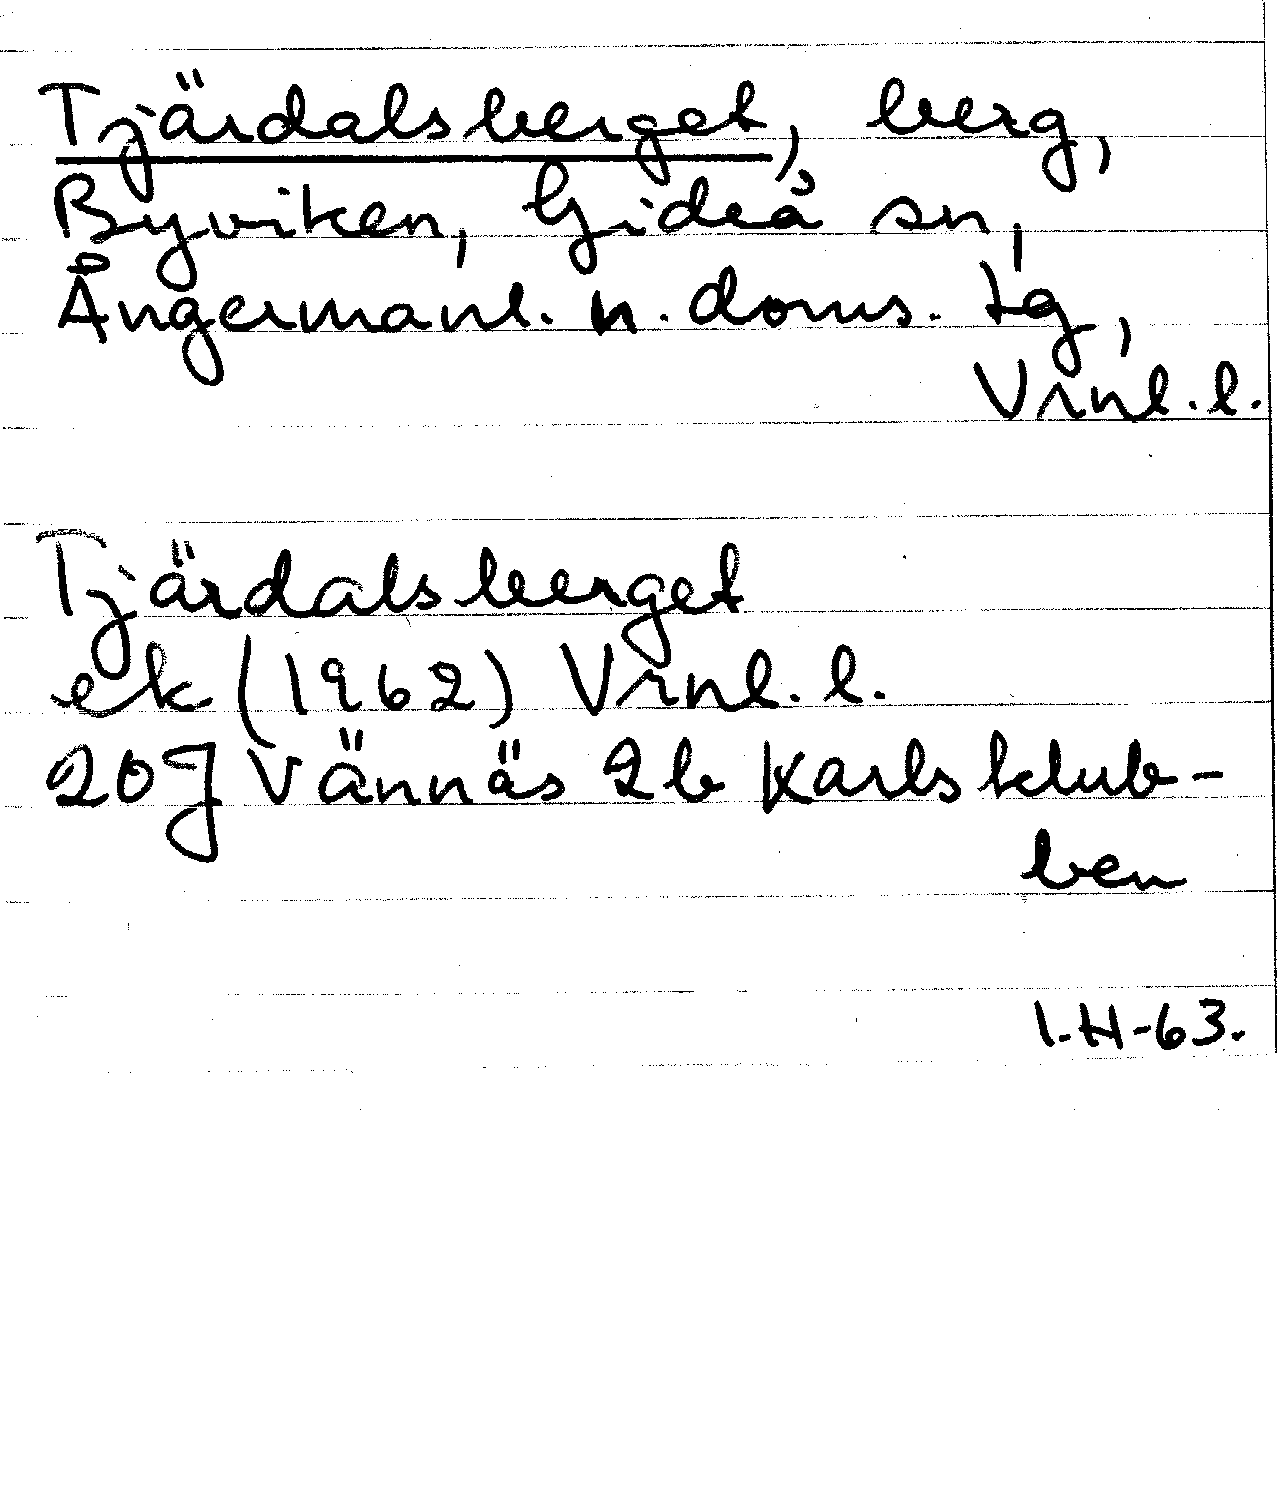 Tjärdalsberget, berg,
Byviken, Gideå sn,
Ångermanl. n. doms. tg,
Vrnl. l.
Tjärdalsberget
ek (1962) Vrnl. l.
20J Vännäs 2b Karlsklub-
ben
I.H-63.